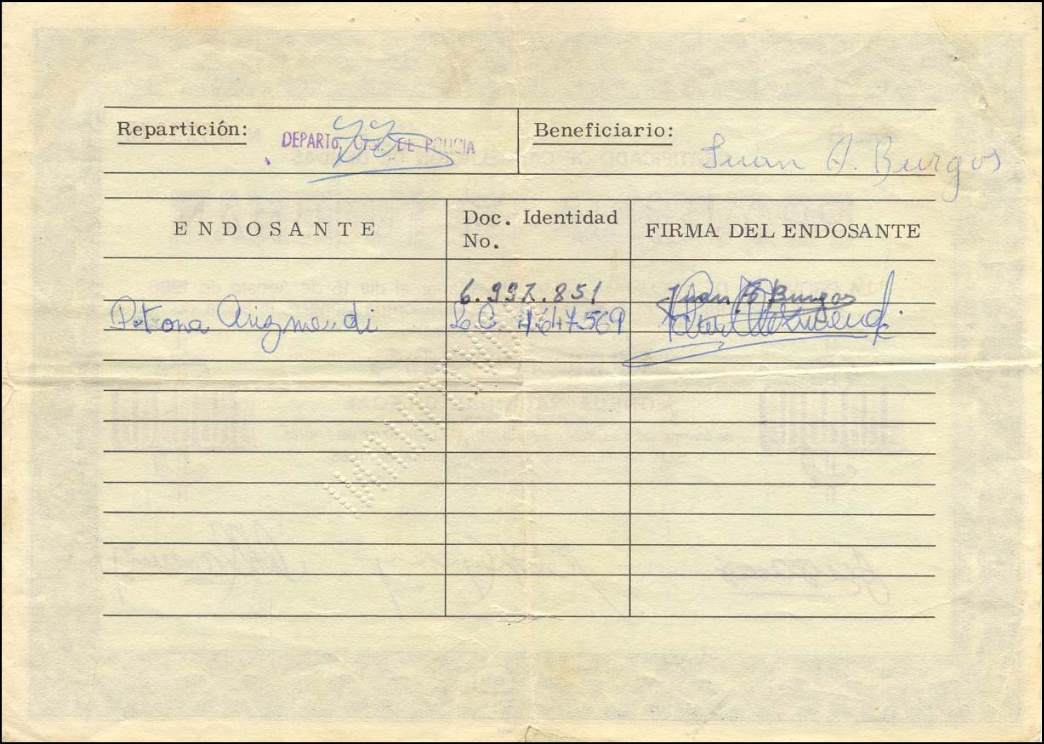 Repartición: DEPARTO. GRAL. DE POLICIA
Beneficiario: Juan A. Burgos
ENDOSANTE Doc. Identidad No. FIRMA DEL ENDOSANTE
6.997.851 Juan A Burgos
Petrona Arizmendi L.C. 4.647.569